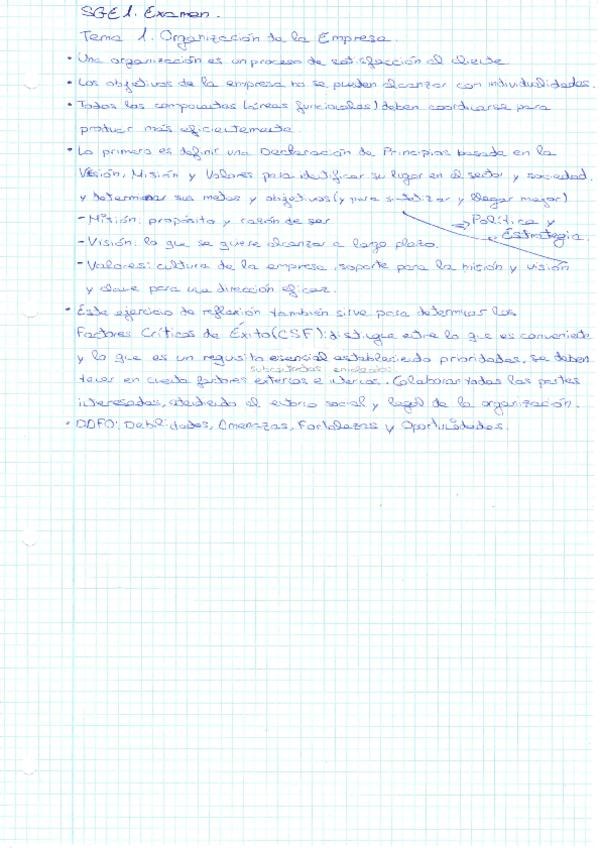 SGE1. Examen.
Tema 1. Organización de la Empresa.
• Una organización es un proceso de satisfacción al cliente
• Los objetivos de la empresa no se pueden alcanzar con individualidades.
• Todos los componentes (áreas funcionales) deben coordinarse para
producir más eficientemente.
• Lo primero es definir una Declaración de Principios basada en la
Visión, Misión y Valores para identificar su lugar en el sector y sociedad
y determinar sus metas y objetivos (y para sintetizar y llegar mejor)
- Misión: propósito y razón de ser
=> Política y
Estrategia
- Visión: lo que se quiere alcanzar a largo plazo.
- Valores: cultura de la empresa, soporte para la misión y visión
y clave para una dirección eficaz.
• Este ejercicio de reflexión también sirve para determinar los
Factores Críticos de Éxito (CSF): distingue entre lo que es conveniente
y lo que es un requisito esencial estableciendo prioridades. Se deben
tener en cuenta factores externos e internos. Colaboran todas las partes
interesadas, atendiendo al entorno social y legal de la organización.
• DAFO: Debilidades, Amenazas, Fortalezas y Oportunidades.